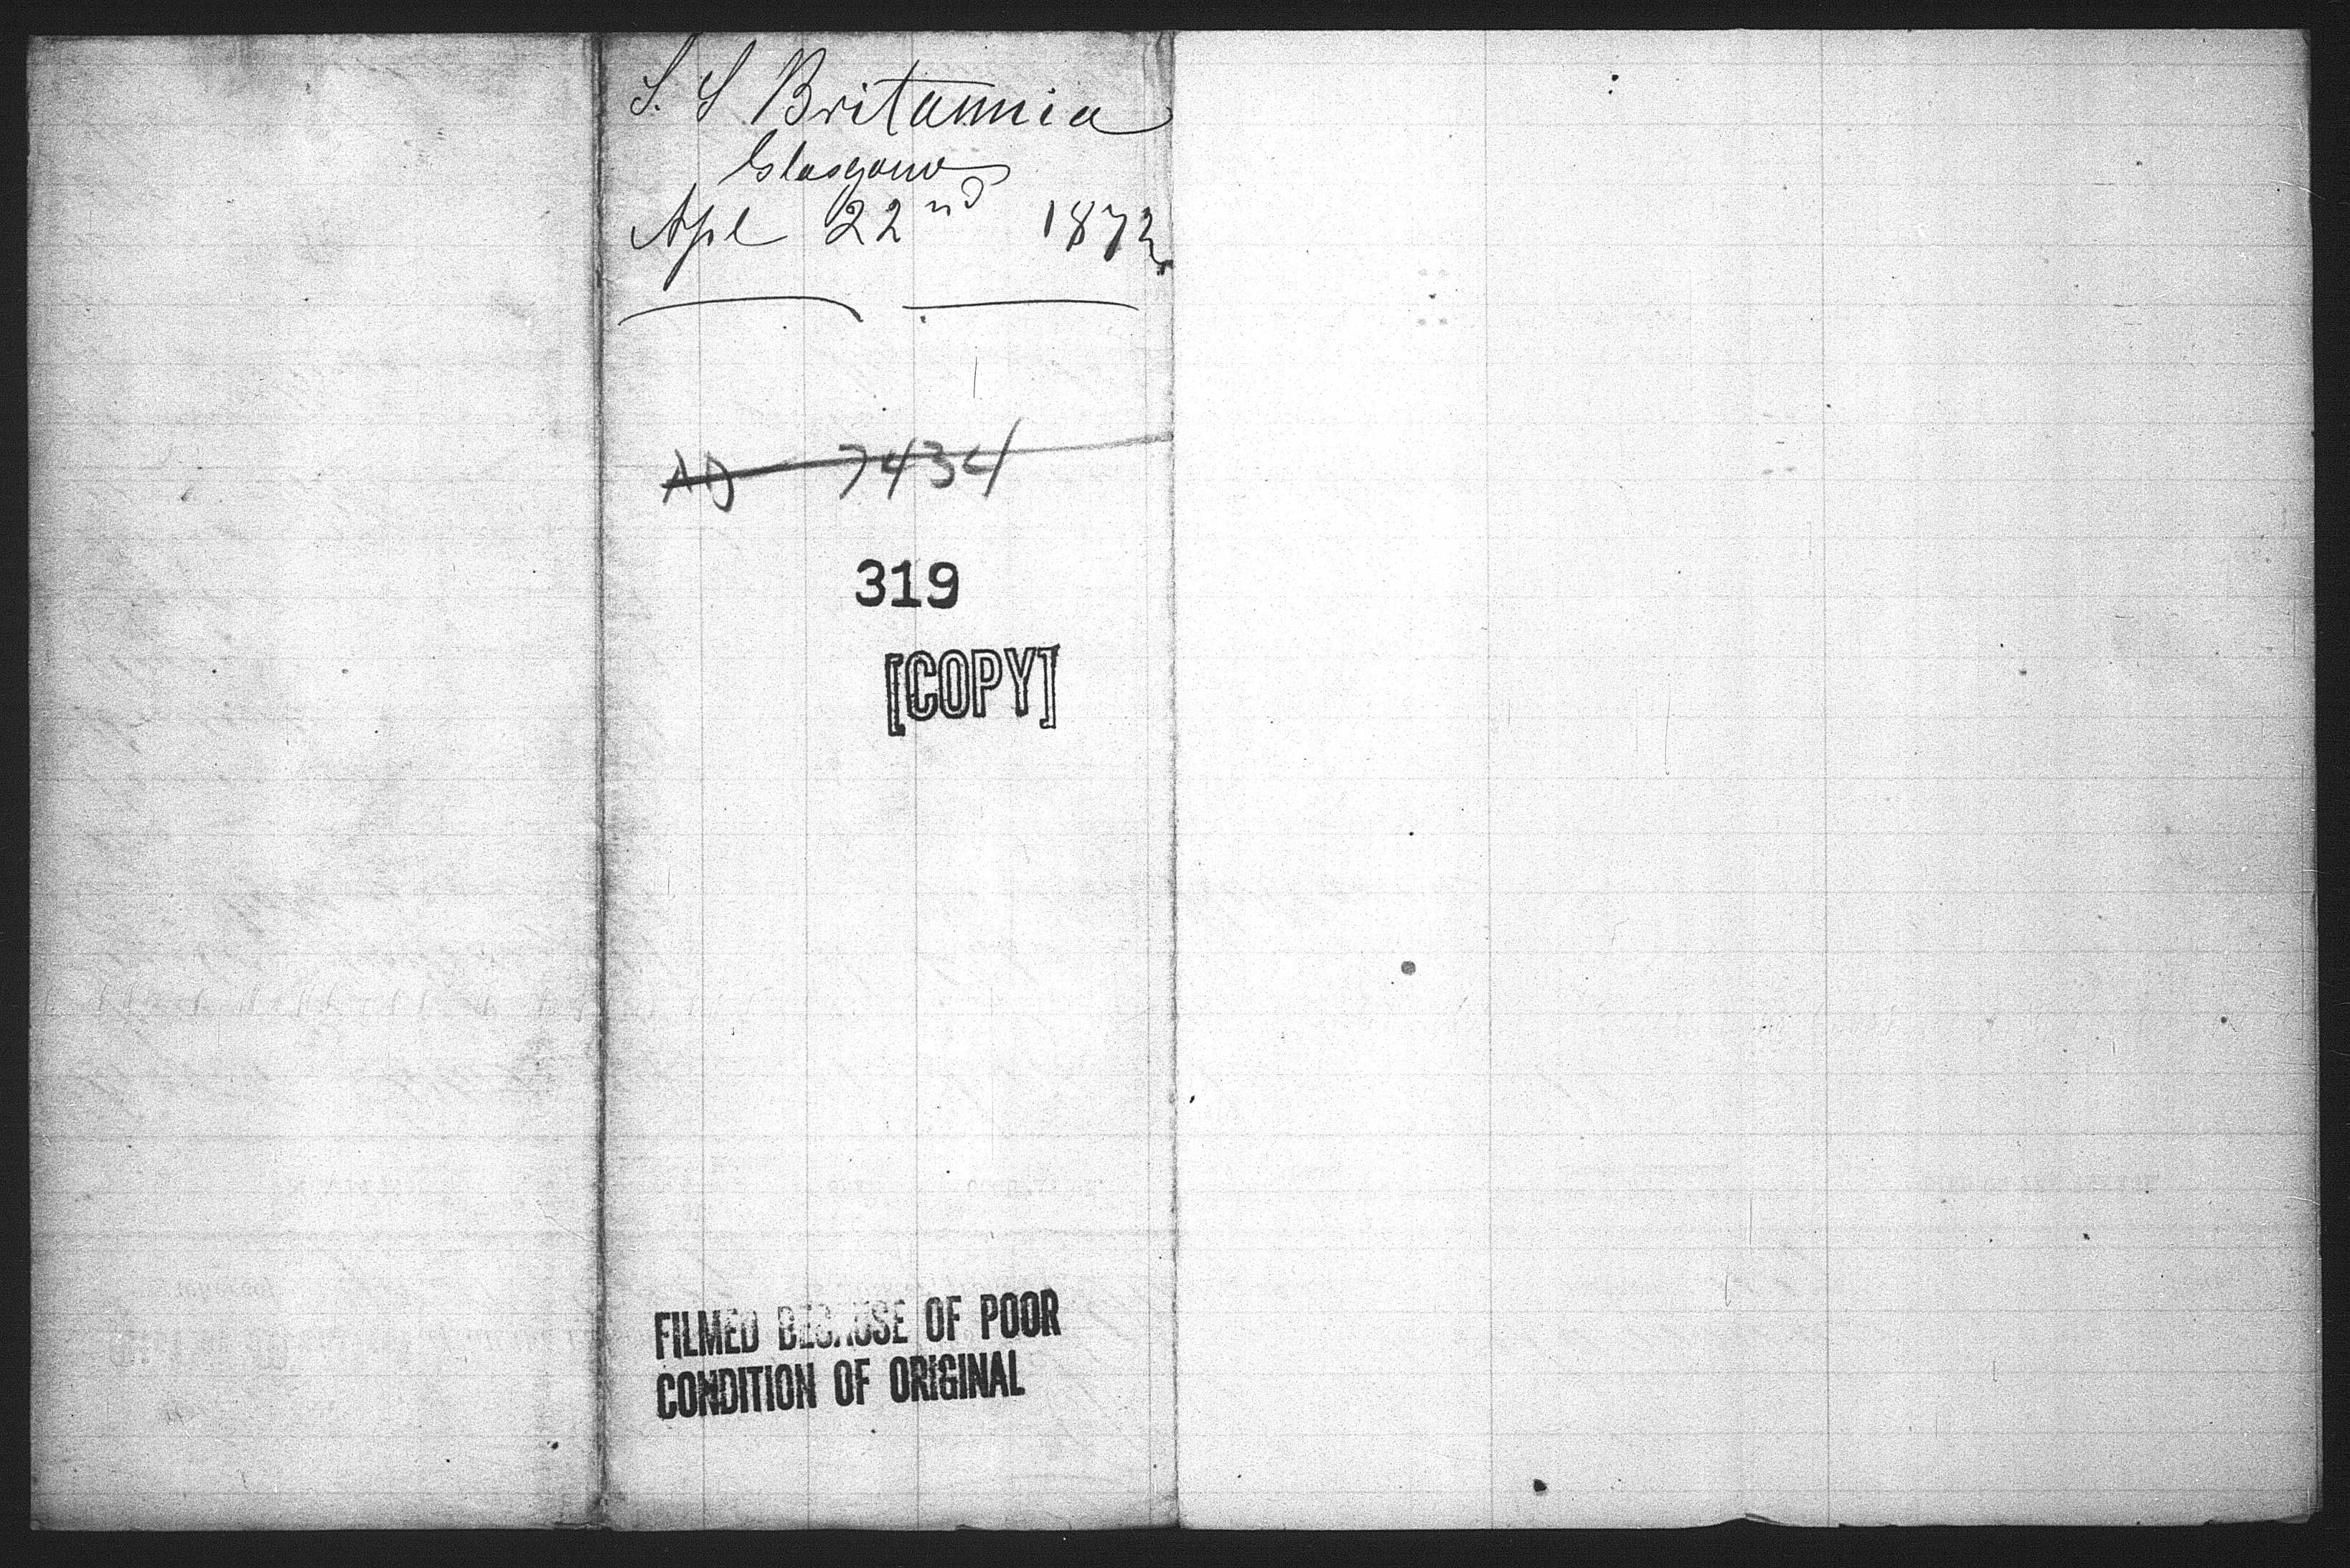 S. S Britannia
Glasgow
Apl 22nd 1872
AD 7434
319
[COPY]
FILMED BECAUSE OF POOR
CONDITION OF ORIGINAL